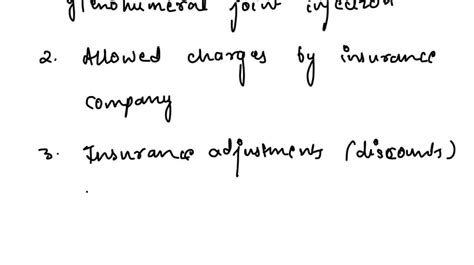 glenohumeral joint injection
2. Allowed charges by insurance
company
3. Insurance adjustments (discounts)